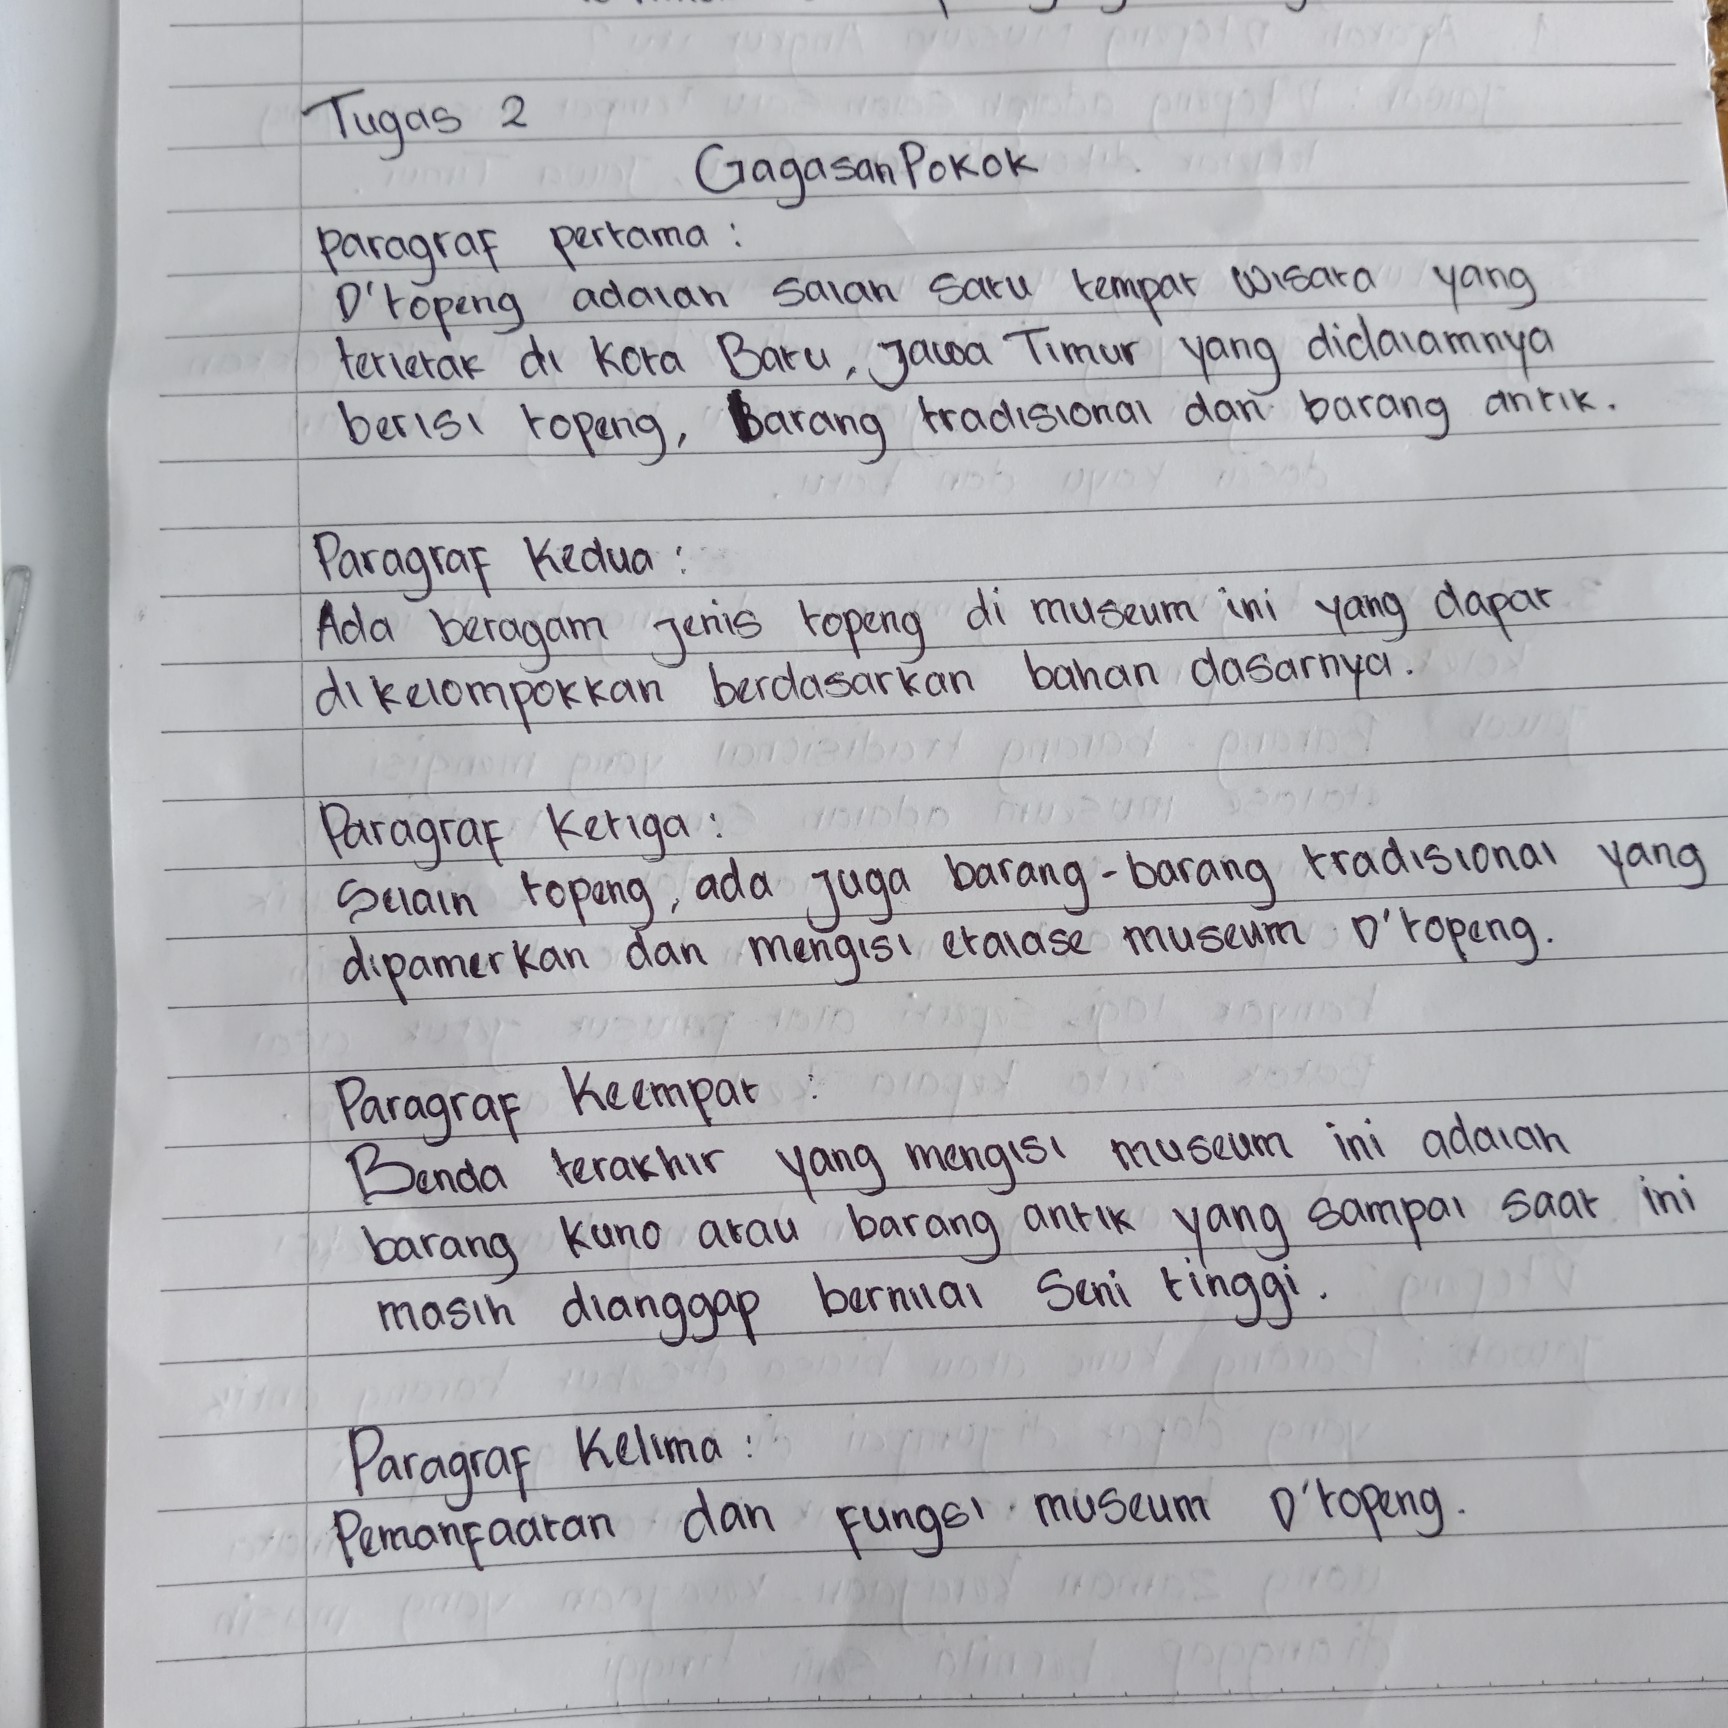 Tugas 2
Gagasan Pokok
paragraf pertama :
D'topeng adalah salah satu tempat wisata yang
terletak di Kota Batu, Jawa Timur yang didalamnya
berisi topeng, Barang tradisional dan barang antik.
Paragraf Kedua :
Ada beragam jenis topeng di museum ini yang dapat
dikelompokkan berdasarkan bahan dasarnya.
Paragraf Ketiga :
Selain topeng, ada juga barang-barang tradisional yang
dipamerkan dan mengisi etalase museum D'topeng.
Paragraf Keempat :
Benda terakhir yang mengisi museum ini adalah
barang kuno atau barang antik yang sampai saat ini
masih dianggap bernilai seni tinggi.
Paragraf Kelima :
Pemanfaatan dan fungsi museum D'topeng.